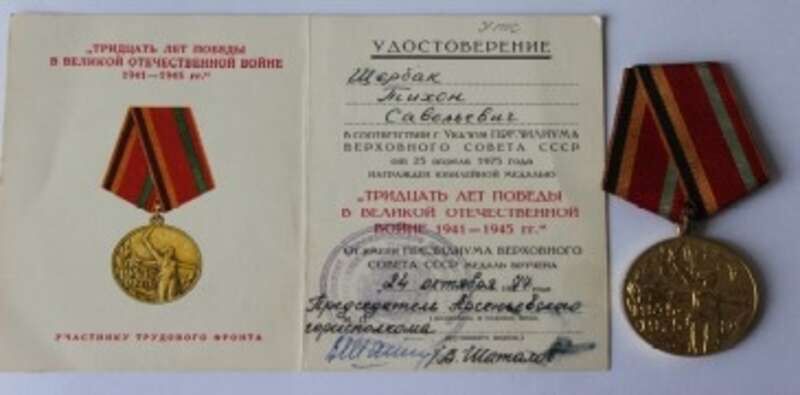 „ТРИДЦАТЬ ЛЕТ ПОБЕДЫ
В ВЕЛИКОЙ ОТЕЧЕСТВЕННОЙ ВОЙНЕ
1941—1945 гг.“
УЧАСТНИКУ ТРУДОВОГО ФРОНТА
УДОСТОВЕРЕНИЕ
Щербак
Тихон
Савельевич
В СООТВЕТСТВИИ С УКАЗОМ ПРЕЗИДИУМА
ВЕРХОВНОГО СОВЕТА СССР
от 25 апреля 1975 года
НАГРАЖДЕН ЮБИЛЕЙНОЙ МЕДАЛЬЮ
„ТРИДЦАТЬ ЛЕТ ПОБЕДЫ
В ВЕЛИКОЙ ОТЕЧЕСТВЕННОЙ
ВОЙНЕ 1941—1945 гг.“
ОТ ИМЕНИ ПРЕЗИДИУМА ВЕРХОВНОГО
СОВЕТА СССР МЕДАЛЬ ВРУЧЕНА
24 октября 1977 года
Председатель Арсеньевского
горисполкома
В. Шаталов
1945
1975